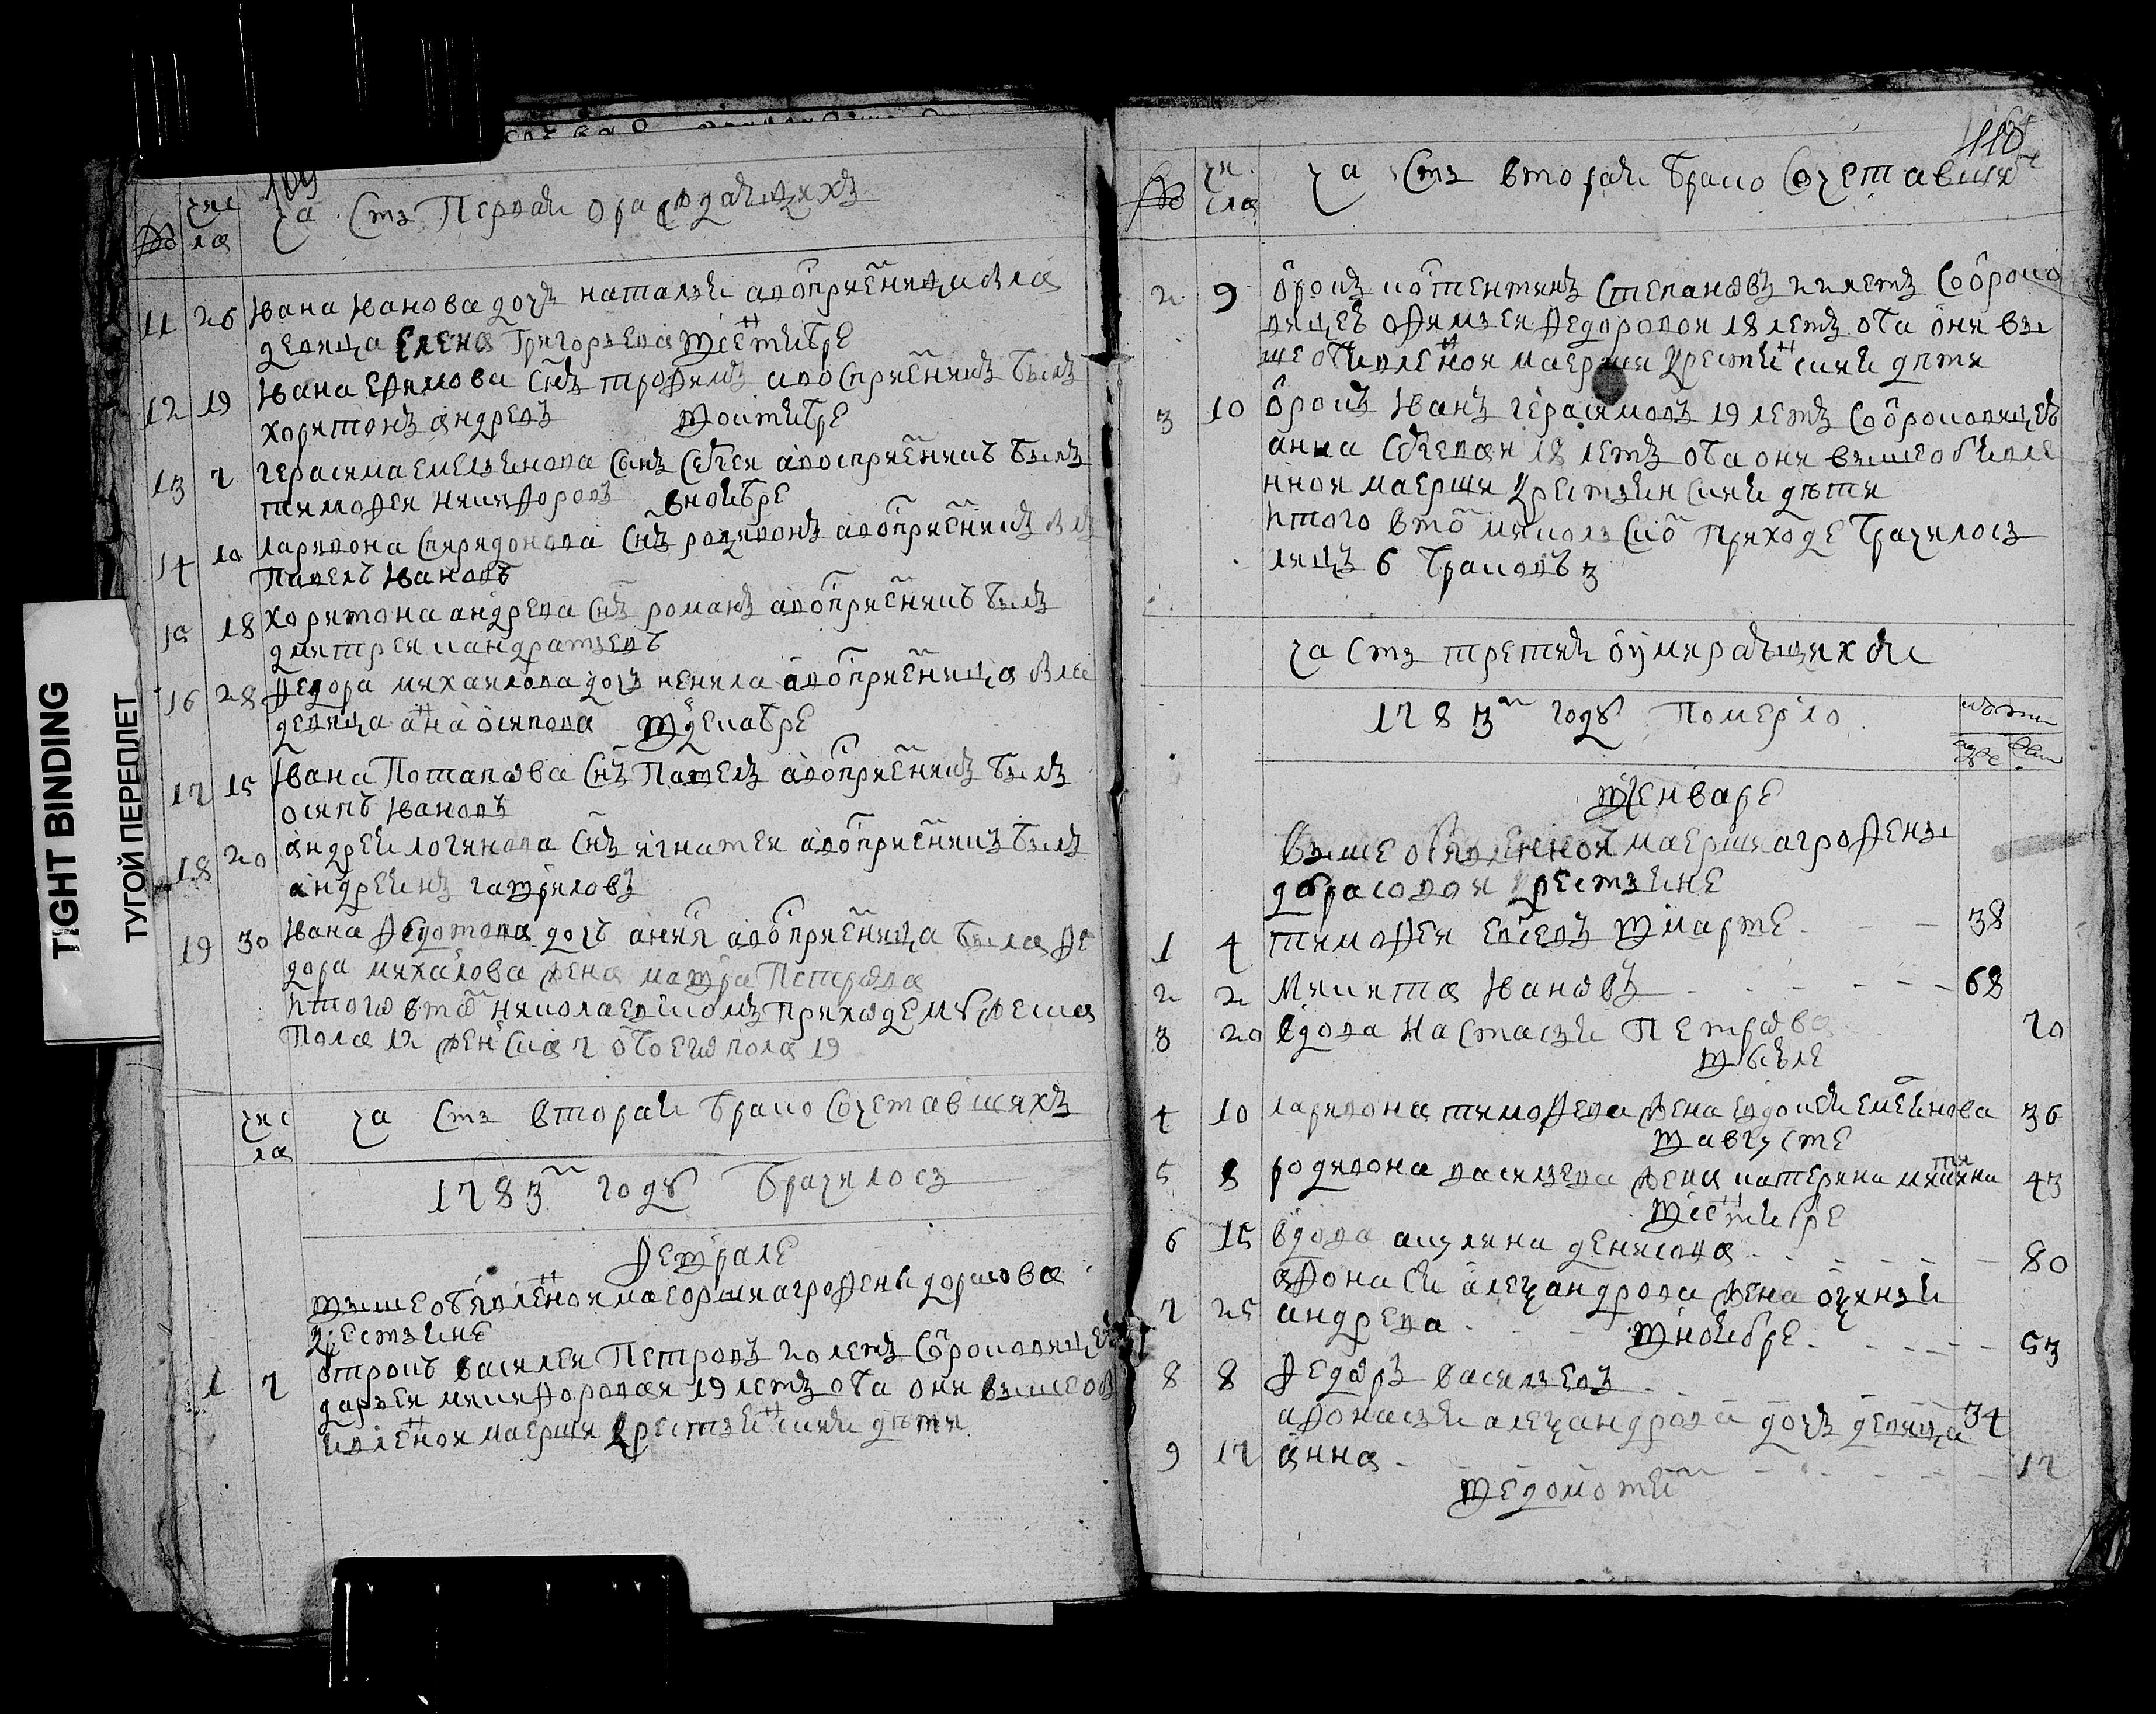 TIGHT BINDING
ТУГОЙ ПЕРЕПЛЕТ
109
№ числа часть первая о раждающихся
11 26 Ивана Иванова дочь наталья а воспрıемница была
девица Елена Григорьева в сентябре
12 19 Ивана Ефимова снъ трофимъ а воспрıемникъ былъ
харитонъ андреевъ в октябре
13 7 герасима емельянова сынъ а воспрıемникъ былъ
тимофеи никифоровъ в ноябре
14 10 ларивона спиридонова снъ родивонъ а воспрıемникъ былъ
павелъ Ивановъ
15 18 харитона андреева снъ романъ а воспрıемникъ былъ
дмитреи кандратьевъ
16 28 федора михаилова дочь ненила а воспрıемница была
девица анна осипова в декабре
17 15 Ивана Потапова снъ Павелъ а воспрıемникъ былъ
осипъ Ивановъ
18 20 андрея логинова снъ игнатеи а воспрıемникъ былъ
гавриловъ
19 30 Ивана федотова дочь а воспрıемница была фе
дора михаилова жена мавра Петрова
итого в том николаевском приходе мужеска
пола 12 женска 7 обоего пола 19
числа часть вторая брако сочетавшихъ
1783 году брачилось
феврале
вышеобъявленнои маеорши агрофены дорасова
крестьяне
1 7 отрокъ василеи Петровъ 20 летъ со отроковицею
дарьеи никифоровои 19 летъ оба они вышеобъ
явленнои маерши крестьянския дети
110
№ числа часть вторая брако сочетавшихся
2 9 отрокъ Степановъ 22 летъ со отроко
вицею офимьеи федоровои 18 летъ оба они вы
шеобъявленнои маерши крестьянския дети
3 10 отрокъ Иванъ герасимовъ 19 летъ со отроковицею
анна 18 летъ оба они вышеобъявле
ннои маерши крестьянския дети
итого в том николском приходе брачилось
лицъ 6 браковъ 3
часть третия о умирающихся
1783 году Померло
в генваре
вышеобъявленнои маерши агрофены
дорасовои крестьяне
1 4 тимофеи евсеевъ в марте 38
2 2 Микита Ивановъ 68
3 20 вдова Настасья Петрова 70
в июле
4 10 ларивона тимофеева жена евдокея емельянова 36
в августе
5 8 родивона васильева жена катерина микитина 43
в сентябре
6 15 вдова акулина денисова 80
афонасья александрова жена
7 25 андреева в ноябре 53
8 8 федоръ васильевъ 34
афонасья александрова дочь девица
9 17 анна 17